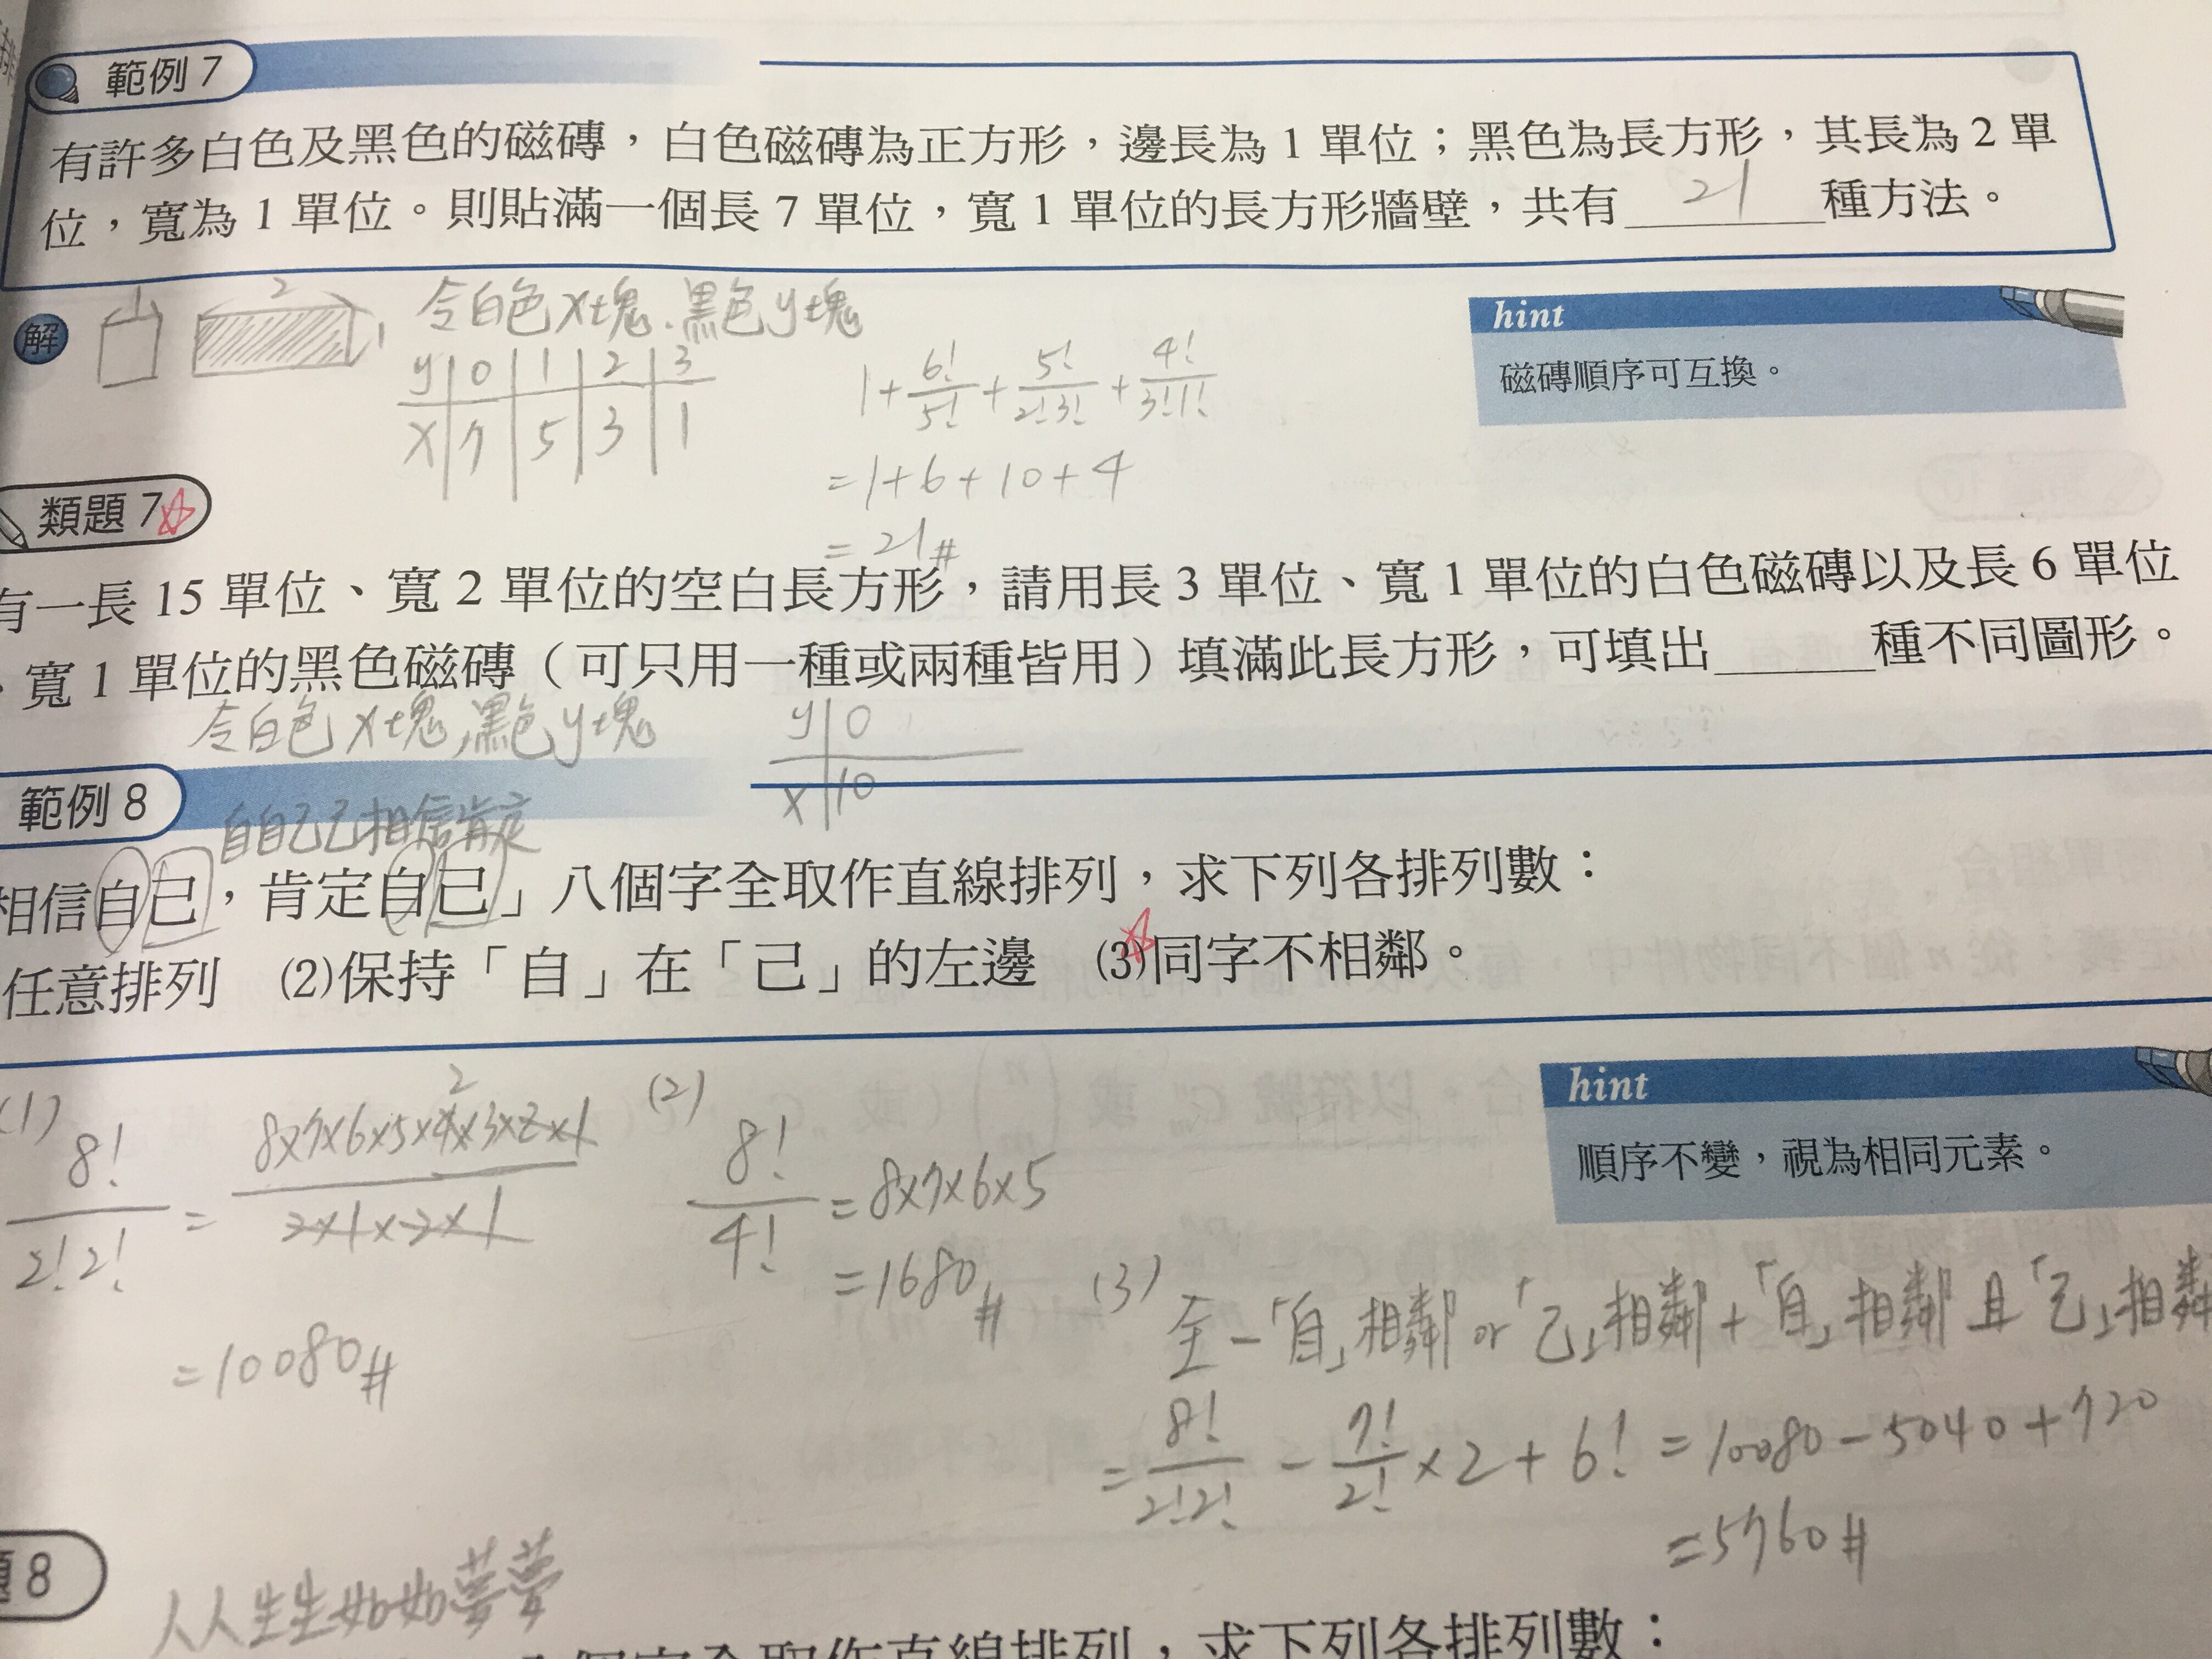 範例 7
有許多白色及黑色的磁磚，白色磁磚為正方形，邊長為 1 單位；黑色為長方形，其長為 2 單
位，寬為 1 單位。則貼滿一個長 7 單位，寬 1 單位的長方形牆壁，共有 21 種方法。
解
1
2
1
令白色x塊.黑色y塊
y 0 1 2 3
x 7 5 3 1
1+6!/5!+5!/2!3!+4!/3!1!
=1+6+10+4
=21#
hint
磁磚順序可互換。
類題 7
有一長 15 單位、寬 2 單位的空白長方形，請用長 3 單位、寬 1 單位的白色磁磚以及長 6 單位
、寬 1 單位的黑色磁磚（可只用一種或兩種皆用）填滿此長方形，可填出______種不同圖形。
令白色x塊,黑色y塊
y 0
x 10
範例 8
自自己己相信肯定
相信自己，肯定自己」八個字全取作直線排列，求下列各排列數：
任意排列 (2)保持「自」在「己」的左邊 (3)同字不相鄰。
hint
順序不變，視為相同元素。
(1) 8!/2!2! = 8x7x6x5x4x3x2x1/2x1x2x1
2
=10080#
(2) 8!/4! =8x7x6x5
=1680#
(3) 全-「自」相鄰 or「己」相鄰+「自」相鄰 且「己」相鄰
=8!/2!2! - 7!/2! x2+6! =10080-5040+720
=5760#
題 8
人人生生如如夢夢
八個字全取作直線排列，求下列各排列數：